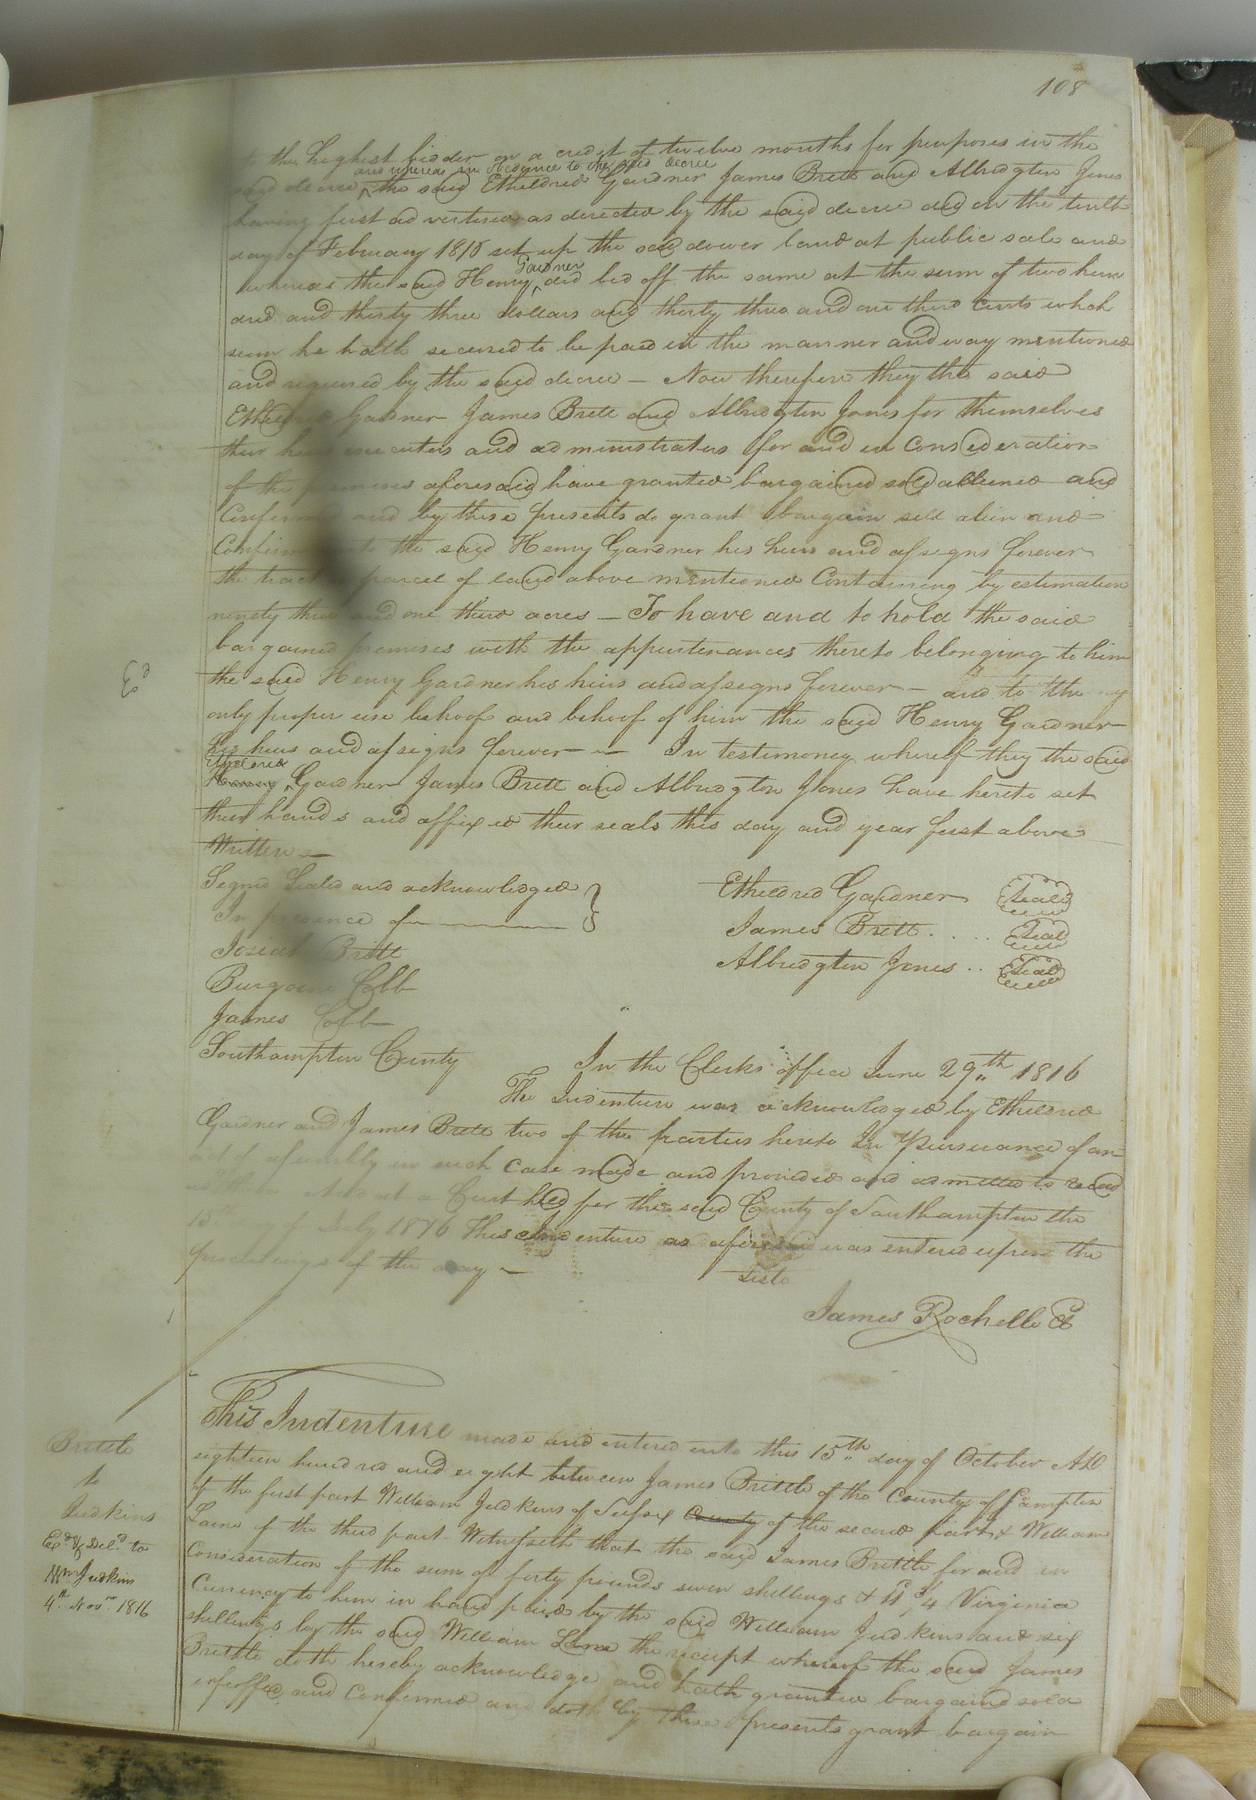 108
to the highest bidder on a credit of twelve months for purposes in the
and whereas in Obedience to the said decree
said decree the said Etheldred Gardner James Brett and Albridgton Jones
having first advertised as directed by the said decree did on the tenth
day of February 1816 set up the said dower land at public sale and
Gardner
whereas the said Henry did bid off the same at the sum of two hun
dred and thirty three dollars and thirty three and one third cents which
sum he hath secured to be paid in the manner and way mentioned
and required by the said decree — Now therefore they the said
Etheldred Gardner James Brett and Albridgton Jones for themselves
their heirs executors and administrators for and in Consideration
of the premises aforesaid have granted bargained sold aliened and
Confirmed and by these presents do grant bargain sell alien and
Confirm to the said Henry Gardner his heirs and assigns forever
the tract parcel of land above mentioned Containing by estimation
ninety three and one third acres — To have and to hold the said
bargained premises with the appurtenances thereto belonging to him
the said Henry Gardner his heirs and assigns forever — and to the
only proper use behoof and behoof of him the said Henry Gardner
his heirs and assigns forever — In testimoney whereof they the said
Etheldred
Henry Gardner James Brett and Albridgton Jones have hereto set
their hands and affixed their seals this day and year first above
Written —
Signed Sealed and acknowledged
In presence of
Josiah Brett
Burgoine Cobb
James Cobb
Etheldred Gardner Seal
James Brett . . . . Seal
Albridgton Jones . . Seal
Ed
Southampton County
In the Clerks office June 29th 1816
The Indenture was acknowledged by Etheldred
Gardner and James Brett two of the parties hereto In Pursuance of an
act of assembly in such Case made and provided and admitted to record
And at a Court held for the said County of Southampton the
15 of July 1816 This indenture as aforesaid was entered upon the
proceedings of the day —
Teste
James Rochelle C
Brittle
to
Judkins
Ed & Deld to
Wm Judkins
4th Novr 1816
This Indenture made and entered into this 15th day of October AD
eighteen hundred and eight between James Brittle of the County of Sampton
of the first part William Judkins of Sussex County of the second part & William
Lane of the third part Witnesseth that the said James Brittle for and in
Consideration of the sum of forty pounds seven shillings & Virginia
Currency to him in hand paid by the said William Judkins and six
shillings by the said William Lane the receipt whereof the said James
Brittle doth hereby acknowledge and hath granted bargained sold
infeoffed and Confirmed and doth by these presents grant bargain